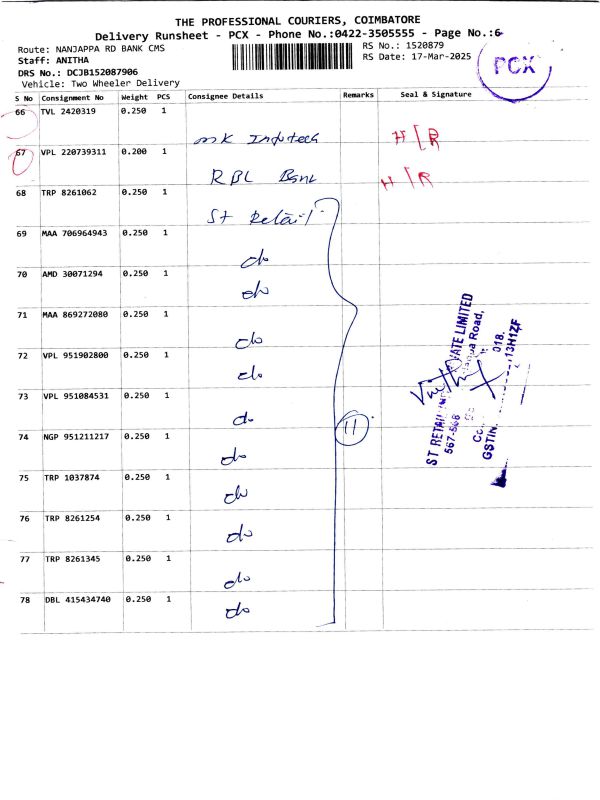 THE PROFESSIONAL COURIERS, COIMBATORE
Delivery Runsheet - PCX - Phone No.:0422-3505555 - Page No.:6
Route: NANJAPPA RD BANK CMS
RS No.: 1520879
Staff: ANITHA
RS Date: 17-Mar-2025
DRS No.: DCJB152087906
Vehicle: Two Wheeler Delivery
PCX
S No Consignment No Weight PCS Consignee Details Remarks Seal & Signature
66 TVL 2420319 0.250 1
MK Infotech H/R
67 VPL 220739311 0.200 1
RBL H/R
68 TRP 8261062 0.250 1
ST Retail
69 MAA 706964943 0.250 1
do
70 AMD 30071294 0.250 1
do
71 MAA 869272080 0.250 1
do
72 VPL 951902800 0.250 1
do
73 VPL 951084531 0.250 1
do
74 NGP 951211217 0.250 1
do
75 TRP 1037874 0.250 1
do
76 TRP 8261254 0.250 1
do
77 TRP 8261345 0.250 1
do
78 DBL 415434740 0.250 1
do
11
ST RETAIL LIMITED
567-568 Road,
018.
GSTIN 13H1ZF